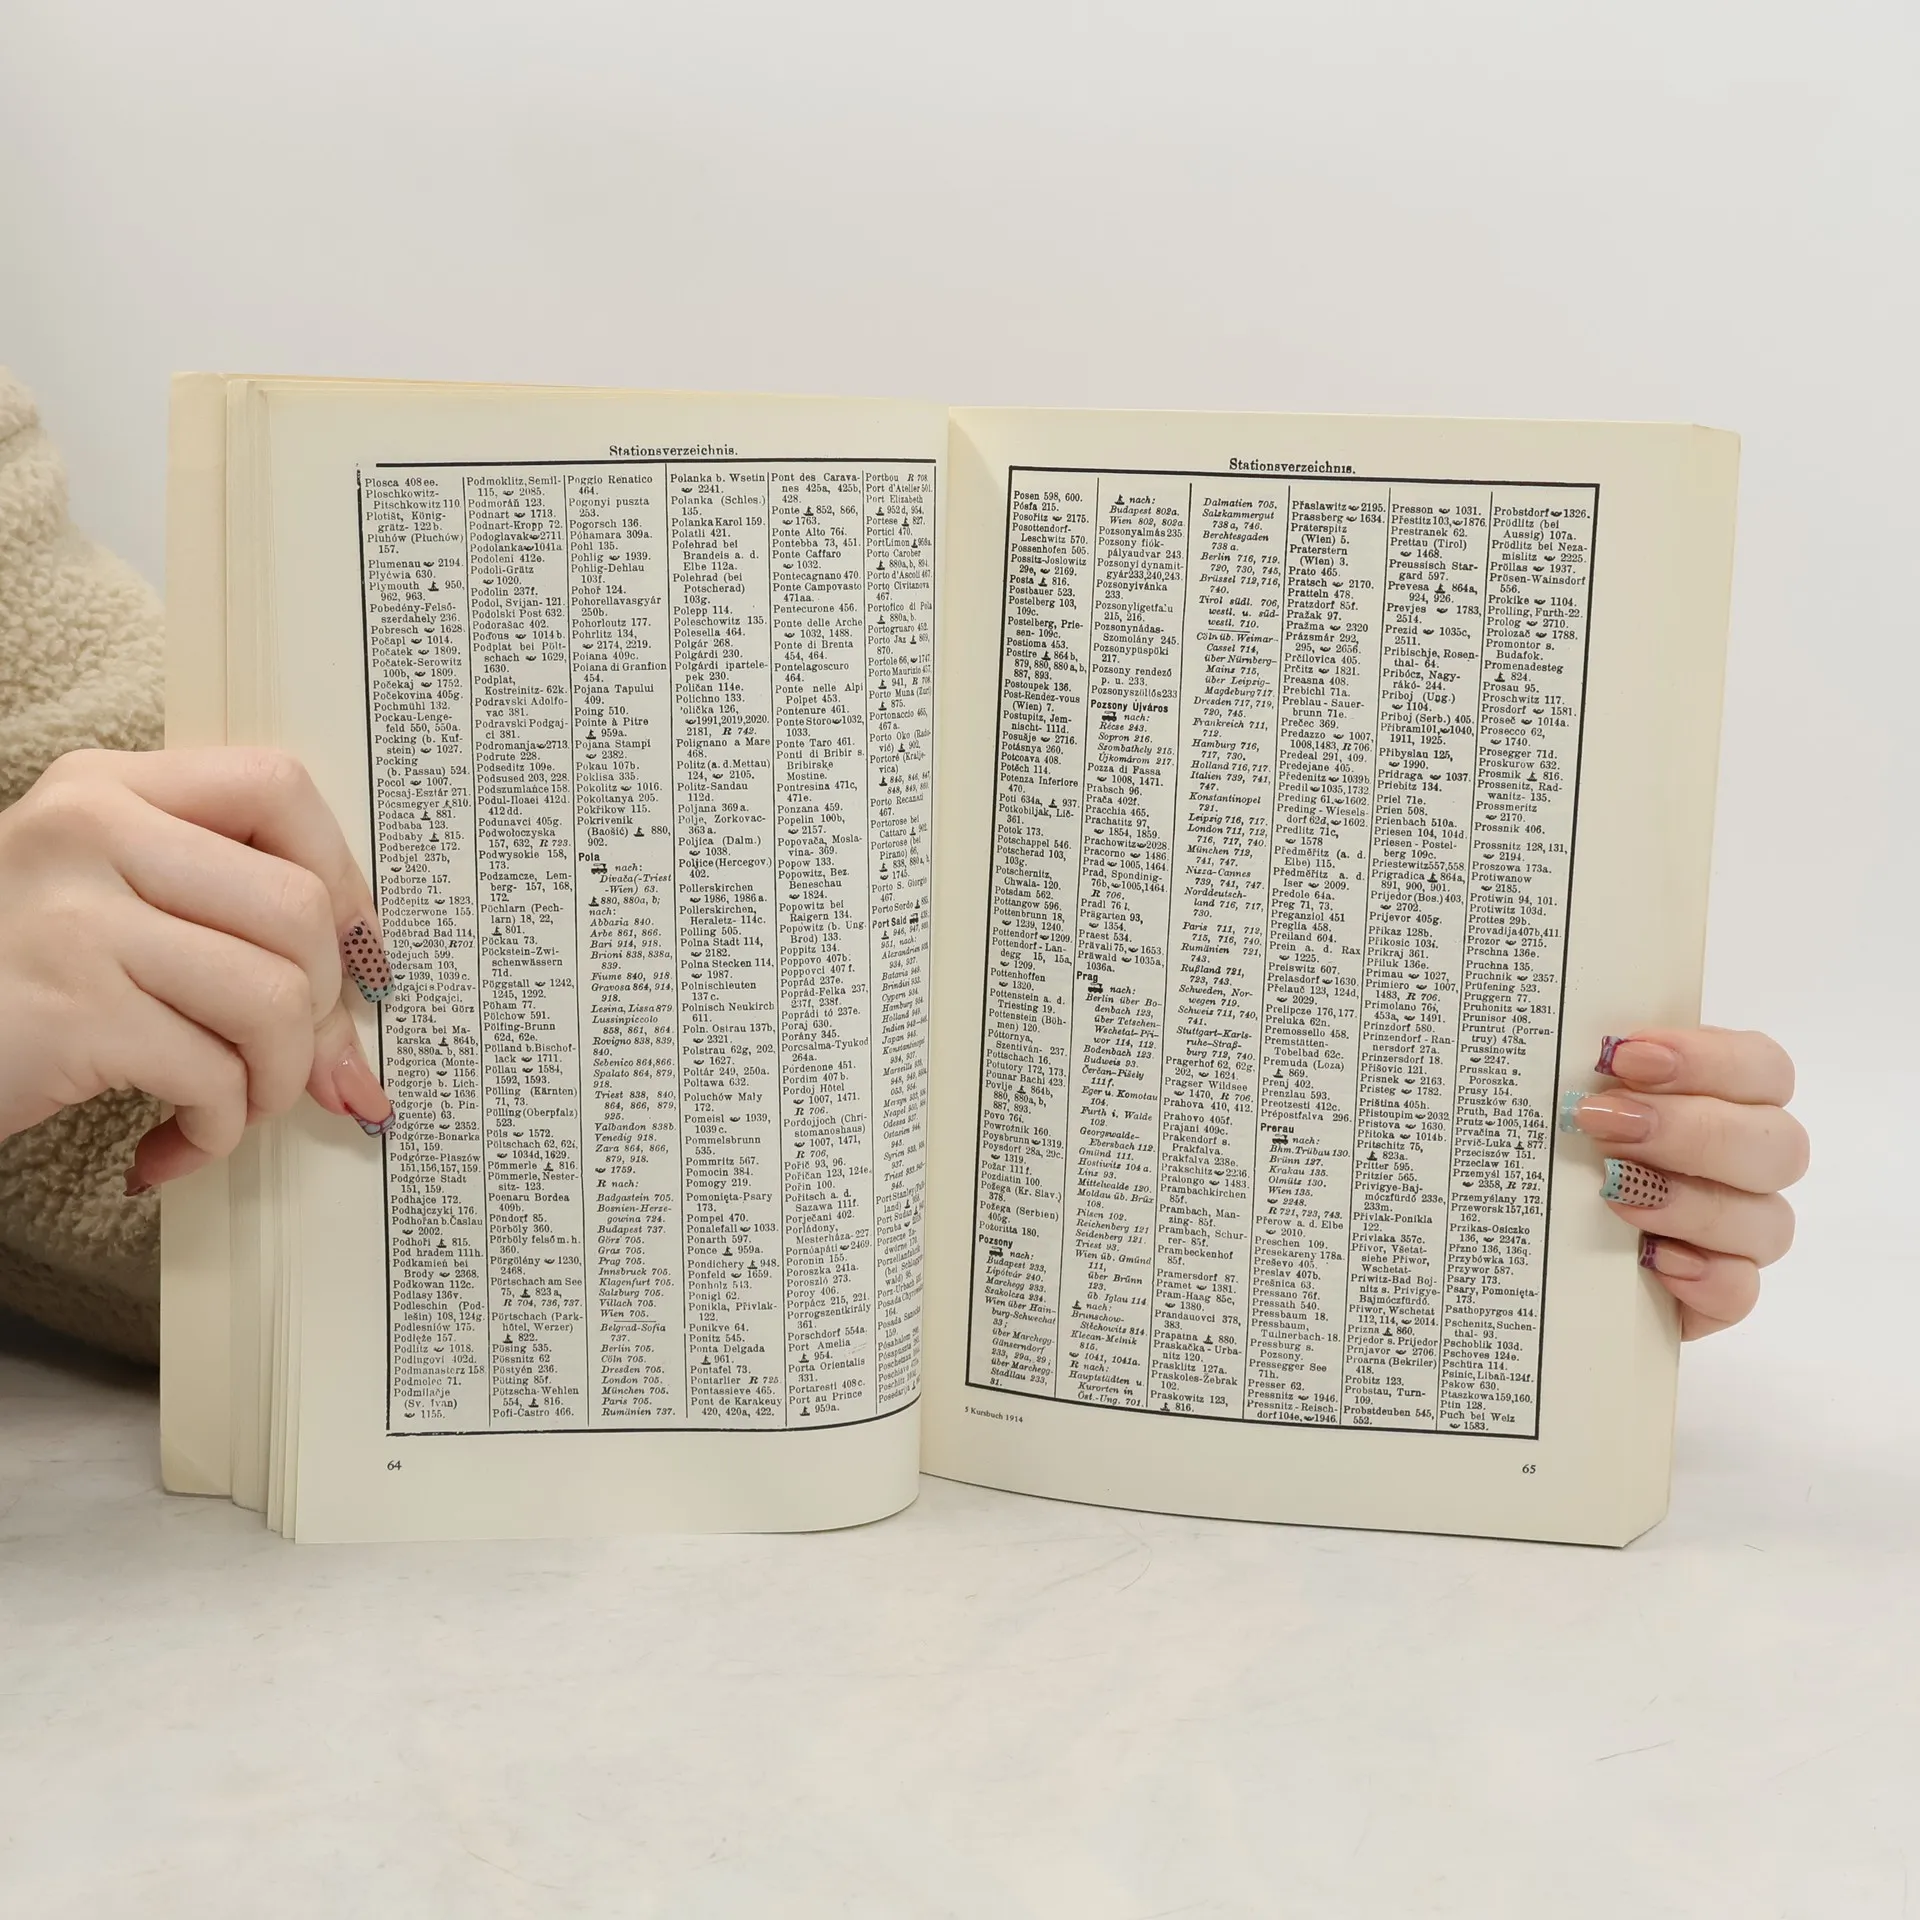 Stationsverzeichnis.
Plosca 408ee.
Ploschkowitz-
Pitschkowitz 110
Plotišt, König-
grätz- 122b.
Pluhów (Pluchów)
157.
Plumenau 2194.
Plyćwia 630.
Plymouth 950,
962, 963.
Pobedény-Felső-
szerdahely 236.
Pobresch 1628.
Počapl 1014.
Počatek 1809.
Počatek-Serowitz
100b, 1809.
Počekaj 1752.
Počekovina 405g.
Pochmühl 132.
Pockau-Lenge-
feld 550, 550a.
Pocking (b. Kuf-
stein) 1027.
Pocking
(b. Passau) 524.
Pocol 1007.
Pocsaj-Esztár 271.
Pócsmegyer 810.
Podaca 881.
Podbaba 123.
Podbaby 815.
Podbereżce 172.
Podbjel 237b,
2420.
Podborze 157.
Podbrdo 71.
Podčepitz 1823,
Podczerwone 155.
Poddubce 165.
Poděbrad Bad 114,
120, 2030, R701.
Podejuch 599.
Podersam 103,
1939, 1039 c.
ski Podgajci.
Podgora bei Görz
1734.
Podgora bei Ma-
karska 864b,
880, 880a. b, 881.
Podgorica (Monte-
negro) 1156
Podgorje b. Lich-
tenwald 1636
Podgorje (b. Pin-
guente) 63.
Podgórze 2352.
Podgórze-Bonarka
151, 159.
Podgórze-Płaszów
151,156,157,159.
Podgórze Stadt
151, 159.
Podhajce 172.
Podhajczyki 176.
Podhořan b.Časlau
2002.
Podhoří 815.
Pod hradem 111h.
Podkamień bei
Brody 2368.
Podkowan 112c.
Podlasy 136v.
Podleschin (Pod-
lešin) 108, 124g.
Podlesniów 175.
Podlęże 157.
Podlitz 1018.
Podingovi 402d.
Podmanasterz 158.
Podmolec 71.
Podmilačje
(Sv. Ivan)
1155.
Podmoklitz,Semil-
115, 2085.
Podmoráň 123.
Podnart 1713.
Podnart-Kropp 72.
Podoglavak 2711.
Podolanka 1041a
Podoleni 412e.
Podoli-Grätz
1020.
Podolin 237f.
Podol, Svijan- 121.
Podolski Post 632.
Podorašac 402.
Podous 1014b.
Podplat bei Pölt-
schach 1629,
1630.
Podplat,
Kostreinitz- 62k.
Podravski Adolfo-
vac 381.
Podravski Podgaj-
ci 381.
Podromanja 2713.
Podrute 228.
Podseditz 109e.
Podsused 203, 228.
Podszumlańce 158.
Podul-Iloaei 412d.
412 dd.
Podunavci 405g.
Podwołoczyska
157, 632, R 723.
Podwysokie 158,
173.
Podzamcze, Lem-
berg- 157, 168,
172.
Pöchlarn (Pech-
larn) 18, 22,
801.
Pöckau 73.
Pöckstein-Zwi-
schenwässern
71d.
Pöggstall 1242,
1245, 1292.
Pöham 77.
Pölchow 591.
Pölfing-Brunn
62d, 62e.
Pölland b.Bischof-
lack 1711.
Pöllau 1584,
1592, 1593.
Pölling (Kärnten)
71, 73.
Pölling(Oberpfalz)
523.
Pöls 1572.
Pöltschach 62, 62i,
1034d,1629.
Pömmerle 816.
Pömmerle, Nester-
sitz- 123.
Poenaru Bordea
409b.
Pöndorf 85.
Pörböly 360.
Pörböly felső m. h.
360.
Pörgölény 1230,
2468.
Pörtschach am See
75, 823a,
R 704, 736, 737.
Pörtschach (Park-
hôtel, Werzer)
822.
Pösing 535.
Pössnitz 62
Pöstyén 236.
Pötting 85f.
Pötzscha-Wehlen
554, 816.
Pofi-Castro 466.
Poggio Renatico
464.
Pogonyi puszta
253.
Pogorsch 136.
Póhamara 309a.
Pohl 135.
Pohlig 1939.
Pohlig-Dehlau
103f.
Pohoř 124.
Pohorellavasgyár
250b.
Pohorloutz 177.
Pohrlitz 134,
2174, 2219.
Poiana 409c.
Poiana di Granfion
454.
Pojana Tapului
409.
Poing 510.
Pointe à Pitre
959a.
Pojana Stampi
2382.
Pokau 107b.
Poklisa 335.
Pokolitz 1016.
Pokoltanya 205.
Pokřikow 115.
Pokrivenik
(Baošić) 880,
902.
Pola
nach:
Divača(-Triest
-Wien) 63.
880, 880a, b;
nach:
Abbazia 840.
Arbe 861, 866.
Bari 914, 918.
Brioni 838, 838a,
839.
Fiume 840, 918.
Gravosa 864, 914,
918.
Lesina, Lissa 879.
Lussinpiccolo
858, 861, 864.
Rovigno 838, 839,
840.
Sebenico 864,866.
Spalato 864, 879,
918.
Triest 838, 840,
864, 866, 879,
925.
Valbandon 838b.
Venedig 918.
Zara 864, 866,
879, 918.
1759.
R nach:
Badgastein 705.
Bosnien-Herze-
gowina 724.
Budapest 737.
Görz 705.
Graz 705.
Prag 705.
Innsbruck 705.
Klagenfurt 705.
Salzburg 705.
Villach 705.
Wien 705.
Belgrad-Sofia
737.
Berlin 705.
Cöln 705.
Dresden 705.
London 705.
München 705.
Paris 705.
Rumänien 737.
Polanka b. Wsetin
2241.
Polanka (Schles.)
135.
Polanka Karol 159.
Polatli 421.
Polehrad bei
Brandeis a. d.
Elbe 112a.
Polehrad (bei
Potscherad)
103g.
Polepp 114.
Poleschowitz 135.
Polesella 464.
Polgár 268.
Polgárdi 230.
Polgárdi ipartele-
pek 230.
Poličan 114e.
Polichno 133.
Polička 126,
1991,2019,2020.
2181, R 742.
Polignano a Mare
468.
Politz (a. d.Mettau)
124, 2105.
Politz-Sandau
112d.
Poljana 369 a.
Polje, Zorkovac-
363 a.
Poljica (Dalm.)
1038.
Poljice(Hercegov.)
402.
Pollerskirchen
1986, 1986 a.
Pollerskirchen,
Heraletz- 114c.
Polling 505.
Polna Stadt 114,
2182.
Polna Stecken 114,
1987.
Polnischleuten
137 c.
Polnisch Neukirch
611.
Poln. Ostrau 137b,
2321.
Polstrau 62g, 202,
1627.
Poltár 249, 250a.
Poltawa 632.
Poluchów Mały
172.
Pomeisl 1939,
1039 c.
Pommelsbrunn
535.
Pommritz 567.
Pomocin 384.
Pomogy 219.
Pomonięta-Psary
173.
Pompei 470.
Ponalefall 1033.
Ponarth 597.
Ponce 959a.
Pondichery 948.
Ponfeld 1659.
Ponigl 62.
Ponikla, Přivlak-
122.
Ponikve 64.
Ponitz 545.
Ponta Delgada
961.
Pontafel 73.
Pontarlier R 725.
Pontassieve 465.
Pont de Karakeuy
420, 420a, 422.
Pont des Carava-
nes 425a, 425b,
428.
Ponte 852, 866,
1763.
Ponte Alto 76i.
Pontebba 73, 451.
Ponte Caffaro
1032.
Pontecagnano 470.
Ponte Campovasto
471aa.
Pontecurone 456.
Ponte delle Arche
1032, 1488.
Ponte di Brenta
454, 464.
Pontelagoscuro
464.
Ponte nelle Alpi
Polpet 453.
Pontenure 461.
Ponte Storo 1032,
1033.
Ponte Taro 461.
Ponti di Bribir s.
Bribirske
Mostine.
Pontresina 471c,
471e.
Ponzana 459.
Popelin 100b,
2157.
Popovača, Mosla-
vina- 369.
Popow 133.
Popowitz, Bez.
Beneschau
1824.
Popowitz bei
Raigern 134.
Popowitz (b. Ung.
Brod) 133.
Poppitz 134.
Poppovo 407b.
Poppovci 407 f.
Poprád 237e.
Poprád-Felka 237,
237f, 238f.
Poprádi tó 237e.
Poraj 630.
Porány 345.
Porcsalma-Tyukod
264a.
Pordenone 451.
Pordim 407 b.
Pordoj Hôtel
1007, 1471.
R 706.
Pordojjoch (Chri-
stomanoshaus)
1007, 1471,
R 706,
Pořič 93, 96.
Pořičan 123, 124e.
Pořin 100.
Pořitsch a. d.
Sazawa 111f.
Porječani 402.
Porládony,
Mesterháza- 227.
Pornóapáti 2469.
Poronin 155.
Poroszka 241a.
Poroszló 273.
Poroy 406.
Porpácz 215, 221.
Porrogszentkirály
361.
Porschdorf 554a.
Port Amelia
954.
Porta Orientalis
331.
Portaresti 408 c.
Port au Prince
959a.
Portbou R 708.
Port d'Atelier 501.
Port Elizabeth
952 d, 954.
Portese 827.
Portici 470.
Port Limon 958a.
Porto Carober
880a, b, 894.
Porto d'Ascoli 467.
Porto Civitanova
467.
Portofico di Pola
880a, b.
Portogruaro 452.
Porto Jaz 869,
870.
Portole 66, 1747.
Porto Maurizio 457,
941, R 708.
Porto Muna (Zut)
875.
Portonaccio 465,
467 a.
Porto Oko (Rado-
vić) 902.
Portoré (Kralje-
vica)
845, 846, 847,
848, 849, 869.
Porto Recanati
467.
Portorose bei
Cattaro 902.
Portorose (bei
Pirano) 66,
838, 880 a, b,
1745.
Porto S. Giorgio
467.
Port Said
nach:
64
Stationsverzeichnis.
Posen 598, 600.
Pósfa 215.
Posořitz 2175.
Posottendorf-
Leschwitz 570.
Possenhofen 505.
Possitz-Joslowitz
29e, 2169.
Posta 816.
Postbauer 523.
Postelberg 103,
109c.
Postelberg, Prie-
sen- 109c.
Postioma 453.
Postire 864 b,
879, 880, 880 a, b,
887, 893.
Postoupek 136.
Post-Rendez-vous
(Wien) 7.
Postupitz, Jem-
nischt- 111d.
Posušje 2716.
Potásnya 260.
Potcoava 408.
Potěch 114.
Potenza Inferiore
470.
Poti 634a, 937.
Potkobiljak, Lič-
361.
Potok 173.
Potschappel 546.
Potscherad 103,
103g.
Potschernitz,
Chwala- 120.
Potsdam 562.
Pottangow 596.
Pottenbrunn 18,
1239, 1240.
Pottendorf 1209.
Pottendorf-Lan-
degg 15, 15a,
1209.
Pottenhoffen
1320.
Pottenstein a. d.
Triesting 19.
Pottenstein (Böh-
men) 120.
Póttornya,
Szentiván- 237.
Pottschach 16.
Potutory 172, 173.
Pounar Bachi 423.
Povlje 864b,
880, 880a, b,
887, 893.
Povo 76i.
Powroźnik 160.
Poysbrunn 1319.
Poysdorf 28a, 29c.
1319.
Požar 111 f.
Pozdiatin 100.
Požega (Kr. Slav.)
378.
Požega (Serbien)
405g.
Pożoritta 180.
Pozsony
nach:
Budapest 233,
Lipótvár 240.
Marchegg 233.
Szakolcza 234.
Wien über Hain-
burg-Schwechat
33;
über Marchegg-
Gänserndorf
233, 29a, 29;
über Marchegg-
Stadlau 233,
31.
nach:
Budapest 802a.
Wien 802, 802a
Pozsonyalmás 235
Pozsony fiók-
pályaudvar 243.
Pozsonyi dynamit-
gyár 233,240,243.
Pozsonyivánka
233.
Pozsonyligetfalu
215, 216.
Pozsonynádas-
Szomolány 245.
Pozsonypüspöki
217.
Pozsony rendező
p. u. 233.
Pozsonyszöllős 233
Pozsony Újváros
nach:
Récse 243.
Sopron 216.
Szombathely 215.
Újkomárom 217.
Pozza di Fassa
1008, 1471.
Prabsch 96.
Prača 402f.
Pracchia 465.
Prachatitz 97,
1854, 1859.
Prachowitz 2028.
Pracorno 1486.
Prad 1005, 1464.
Prad, Spondinig-
76b, 1005,1464.
R 706.
Pradl 76 l.
Prägarten 93,
1354.
Praest 534.
Prävali 75, 1653.
Präwald 1035a,
1036a.
Prag
nach:
Berlin über Bo-
denbach 123,
über Tetschen-
Wschetat-Při-
wor 114, 112.
Bodenbach 123.
Budweis 93.
Čerčan-Pišely
111f.
Eger u. Komotau
104.
Furth i. Walde
102.
Georgswalde-
Ebersbach 112.
Gmünd 111.
Hostiwitz 104 a.
Linz 93.
Mittelwalde 120.
Moldau üb. Brüx
108.
Pilsen 102.
Reichenberg 121.
Seidenberg 121.
Triest 93.
Wien üb. Gmünd
111,
über Brünn
123.
üb. Iglau 114
nach:
Brunschow-
Stěchowitz 814.
Klecan-Melnik
815.
1041, 1041a.
R nach:
Hauptstädten u.
Kurorten in
Öst.-Ung. 701.
Dalmatien 705.
Salzkammergut
738 a, 746.
Berchtesgaden
738 a.
Berlin 716, 719.
720, 730, 745,
Brüssel 712,716,
740.
Tirol südl. 706,
westl. u. süd-
westl. 710.
Cöln üb. Weimar-
Cassel 714,
über Nürnberg-
Mainz 715,
über Leipzig-
Magdeburg 717.
Dresden 717, 719,
720, 745.
Frankreich 711,
712.
Hamburg 716,
717, 730.
Holland 716,717.
Italien 739, 741,
747.
Konstantinopel
721.
Leipzig 716, 717.
London 711, 712,
716, 717, 740.
München 712,
741, 747.
Nizza-Cannes
739, 741, 747.
Norddeutsch-
land 716, 717,
730.
Paris 711, 712,
715, 716, 740.
Rumänien 721,
743.
Rußland 721,
723, 743.
Schweden, Nor-
wegen 719.
Schweiz 711, 740,
741.
Stuttgart-Karls-
ruhe-Straß-
burg 712, 740.
Pragerhof 62, 62g,
202, 1624.
Pragser Wildsee
1470, R 706.
Prahova 410, 412.
Prahovo 405f.
Prajani 409c.
Prakendorf s.
Prakfalva.
Prakfalva 238e.
Prakschitz 2236.
Pralongo 1483.
Prambachkirchen
85f.
Prambach, Man-
zing- 85f.
Prambach, Schur-
rer- 85f.
Prambeckenhof
85f.
Pramersdorf 87.
Pramet 1381.
Pram-Haag 85c,
1380.
Prandauovci 378,
383.
Prapatna 880.
Praskačka-Urba-
nitz 120.
Prasklitz 127a.
Praskoles-Žebrak
102.
Praskowitz 123,
816.
Přaslawitz 2195.
Prassberg 1634.
Praterspitz
(Wien) 5.
Praterstern
(Wien) 3.
Prato 465.
Pratsch 2170.
Pratteln 478.
Pratzdorf 85f.
Pražak 97.
Pražma 2320
Prázsmár 292,
295, 2656.
Prčilovica 405.
Prčitz 1821.
Preasna 408.
Prebichl 71a.
Preblau-Sauer-
brunn 71e.
Prečec 369.
Predazzo 1007,
1008,1483, R 706.
Predeal 291, 409.
Predejane 405.
Předenitz 1039b.
Predil 1035,1732.
Preding 61, 1602.
Preding-Wiesels-
dorf 62d, 1602.
Predlitz 71c,
1578
Předměřitz (a. d.
Elbe) 115.
Předměřitz a. d.
Iser 2009.
Predole 64a.
Preg 71, 73.
Preganziol 451
Preglia 458.
Preiland 604.
Prein a. d. Rax
1225.
Preiswitz 607.
Prelasdorf 1630.
Přelauč 123, 124d,
2029.
Prelipcze 176, 177.
Preluka 62n.
Premossello 458.
Premstätten-
Tobelbad 62c.
Premuda (Loza)
869.
Prenj 402.
Prenzlau 593.
Preotzesti 412c.
Prépostfalva 296.
Prerau
nach:
Bhm.Trübau 130.
Brünn 127.
Krakau 135.
Olmütz 130.
Wien 135.
2248.
R 721, 723, 743.
Přerow a. d. Elbe
2010.
Preschen 109.
Presekareny 178a.
Preševo 405.
Preslav 407b.
Prešnica 63.
Pressano 76f.
Pressath 540.
Pressbaum 18.
Pressbaum,
Tullnerbach- 18.
Pressburg s.
Pozsony.
Pressegger See
71h.
Presser 62.
Pressnitz 1946.
Pressnitz-Reisch-
dorf 104e, 1946.
Presson 1031.
Přestitz 103, 1876.
Prestranek 62.
Prettau (Tirol)
1468.
Preussisch Star-
gard 597.
Prevesa 864a,
924, 926.
Prevjes 1783,
2514.
Prezid 1035c,
2511.
Pribischje, Rosen-
thal- 64.
Pribócz, Nagy-
rákó- 244.
Priboj (Ung.)
1104.
Priboj (Serb.) 405.
Přibram 101, 1040,
1911, 1925.
Přibyslau 125,
1990.
Pridraga 1037.
Priebitz 134.
Priel 71e.
Prien 508.
Prienbach 510a.
Priesen 104, 104d.
Priesen-Postel-
berg 109c.
Priestewitz 557,558.
Prigradica 864a,
891, 900, 901.
Prijedor(Bos.) 403,
2702.
Prijevor 405g.
Přikaz 128b.
Přikosic 103i.
Prikraj 361.
Přiluk 136e.
Primau 1027,
Primiero 1007,
1483, R 706.
Primolano 76i,
453a, 1491.
Prinzdorf 580.
Prinzendorf-Ran-
nersdorf 27a.
Prinzersdorf 18.
Přišovic 121.
Prisnek 2163.
Pristeg 1782.
Priština 405h.
Přistoupim 2032.
Pristova 1630.
Přitoka 1014b.
Pritschitz 75,
823a.
Pritter 595.
Pritzier 565.
Privigye-Baj-
móczfürdő 233e,
233m.
Přivlak-Ponikla
122.
Privlaka 357c.
Přivor, Všetat-
siehe Přiwor,
Wschetat-
Priwitz-Bad Boj-
nitz s. Privigye-
Bajmóczfürdő.
Přiwor, Wschetat
112, 114, 2014.
Prizna 860.
Prjedor s. Prijedor
Prnjavor 2706.
Proarna (Bekriler)
418.
Probitz 123.
Probstau, Turn-
109.
Probstdeuben 545,
552.
Probstdorf 1326.
Prödlitz (bei
Aussig) 107a.
Prödlitz bei Neza-
mislitz 2225.
Pröllas 1937.
Prösen-Wainsdorf
556.
Prokike 1104.
Prolling, Furth- 22
Prolog 2710.
Prolozač 1788.
Promontor s.
Budafok.
Promenadesteg
824.
Prosau 95.
Proschwitz 117.
Prosdorf 1581.
Proseč 1014a.
Prosecco 62,
1740.
Prosegger 71d.
Proskurow 632.
Prosmik 816.
Prossenitz, Rad-
wanitz- 135.
Prossmeritz
2170.
Prossnik 406.
Prossnitz 128,131,
2194.
Proszowa 173a.
Protiwanow
2185.
Protiwin 94, 101.
Protiwitz 103d.
Prottes 29b.
Provadija 407b,411.
Prozor 2715.
Prschna 136e.
Pruchna 135.
Pruchnik 2357.
Prüfening 523.
Pruggern 77.
Pruhonitz 1831.
Prunisor 408.
Pruntrut (Porren-
truy) 478a.
Prussinowitz
2247.
Prusskau s.
Poroszka.
Prusy 154.
Pruszków 630.
Pruth, Bad 176a.
Prutz 1005,1464.
Prvačina 71, 71g.
Prvič-Luka 877.
Przeciszów 151.
Przeclaw 161.
Przemyśl 157, 164,
2358, R 721.
Przemyślany 172.
Przeworsk 157,161,
162.
Przikas-Osiczko
136, 2247a.
Přzno 136, 136q.
Przybówka 163.
Przywor 587.
Psary 173.
Psary, Pomonięta-
173.
Psathopyrgos 414.
Pschenitz, Suchen-
thal- 93.
Pschoblik 103d.
Pschoves 124e.
Pschüra 114.
Psinic, Libaň-124f.
Pskow 630.
Ptaszkowa 159,160.
Ptin 128.
Puch bei Weiz
1583.
5 Kursbuch 1914
65